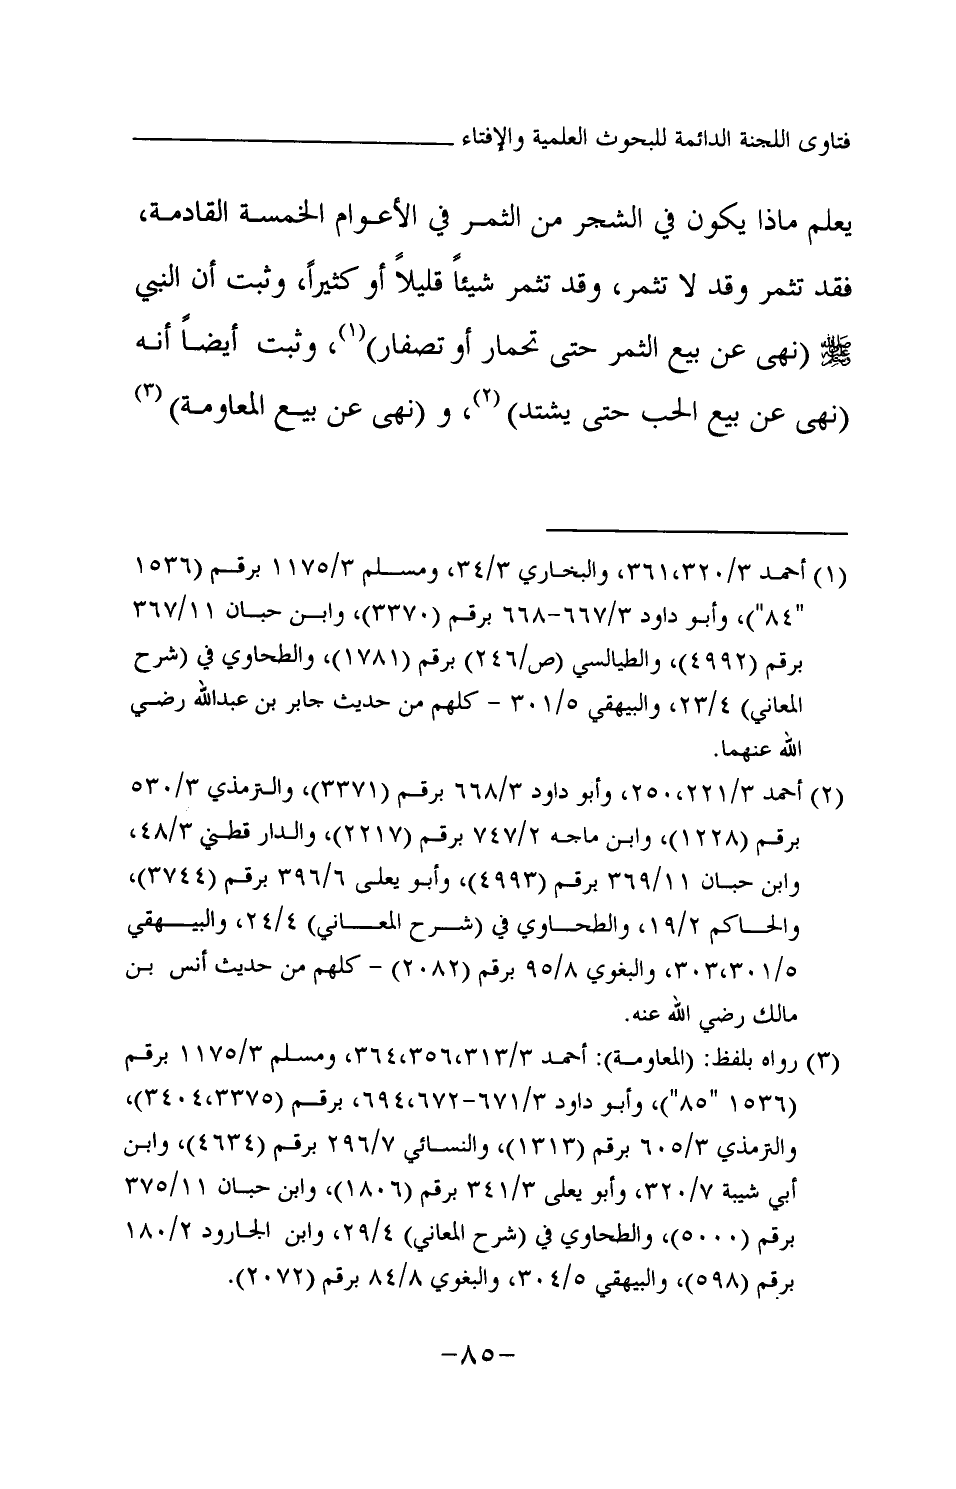 فتاوى اللجنة الدائمة للبحوث العلمية والإفتاء
يعلم ماذا يكون في الشجر من الثمر في الأعوام الخمسة القادمة،
فقد تثمر وقد لا تثمر، وقد تثمر شيئاً قليلاً أو كثيراً، وثبت أن النبي
ﷺ (نهى عن بيع الثمر حتى تحمار أو تصفار)(١)، وثبت أيضاً أنه
(نهى عن بيع الحب حتى يشتد)(٢)، و (نهى عن بيع المعاومة)(٣)
(١) أحمد ٣/٣٢٠،٣٦١، والبخاري ٣/٣٤، ومسلم ٣/١١٧٥ برقم (١٥٣٦
"٨٤")، وأبو داود ٣/٦٦٧-٦٦٨ برقم (٣٣٧٠)، وابن حبان ١١/٣٦٧
برقم (٤٩٩٢)، والطيالسي (ص/٢٤٦) برقم (١٧٨١)، والطحاوي في (شرح
المعاني) ٤/٢٣، والبيهقي ٥/٣٠١ - كلهم من حديث جابر بن عبدالله رضي
الله عنهما.
(٢) أحمد ٣/٢٢١،٢٥٠، وأبو داود ٣/٦٦٨ برقم (٣٣٧١)، والترمذي ٣/٥٣٠
برقم (١٢٢٨)، وابن ماجه ٢/٧٤٧ برقم (٢٢١٧)، والدار قطني ٣/٤٨،
وابن حبان ١١/٣٦٩ برقم (٤٩٩٣)، وأبو يعلى ٦/٣٩٦ برقم (٣٧٤٤)،
والحاكم ٢/١٩، والطحاوي في (شرح المعاني) ٤/٢٤، والبيهقي
٥/٣٠١،٣٠٣، والبغوي ٨/٩٥ برقم (٢٠٨٢) - كلهم من حديث أنس بن
مالك رضي الله عنه.
(٣) رواه بلفظ: (المعاومة): أحمد ٣/٣١٣،٣٥٦،٣٦٤، ومسلم ٣/١١٧٥ برقم
(١٥٣٦ "٨٥")، وأبو داود ٣/٦٧١-٦٧٢،٦٩٤، برقم (٣٣٧٥،٣٤٠٤)،
والترمذي ٣/٦٠٥ برقم (١٣١٣)، والنسائي ٧/٢٩٦ برقم (٤٦٣٤)، وابن
أبي شيبة ٧/٣٢٠، وأبو يعلى ٣/٣٤١ برقم (١٨٠٦)، وابن حبان ١١/٣٧٥
برقم (٥٠٠٠)، والطحاوي في (شرح المعاني) ٤/٢٩، وابن الجارود ٢/١٨٠
برقم (٥٩٨)، والبيهقي ٥/٣٠٤، والبغوي ٨/٨٤ برقم (٢٠٧٢).
-٨٥-